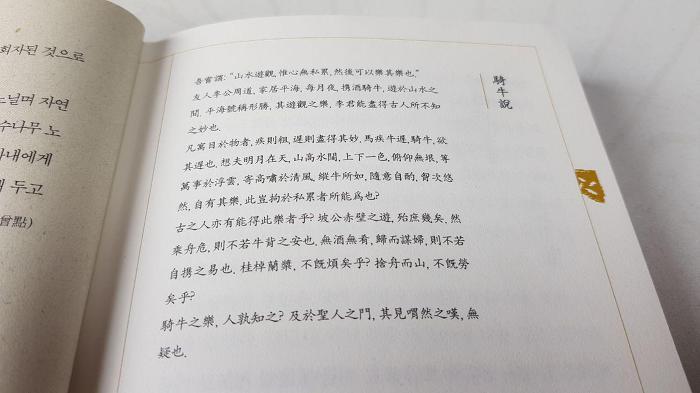 회자된 것으로
느닐며 자연
수나무 노
아내에게
해 두고
(曾點)
騎牛說
吾嘗謂: "山水遊觀, 惟心無私累, 然後可以樂其樂也."
友人李公周道, 家居平海, 每月夜, 携酒騎牛, 遊於山水之
間. 平海號稱形勝, 其遊觀之樂, 李君能盡得古人所不知
之妙也.
凡寓目於物者, 疾則粗, 遲則盡得其妙. 馬疾牛遲, 騎牛, 欲
其遲也. 想夫明月在天, 山高水闊, 上下一色, 俯仰無垠, 等
萬事於浮雲, 寄高嘯於淸風, 縱牛所如, 隨意自酌, 胷次悠
然, 自有其樂, 此豈拘於私累者所能爲也?
古之人亦有能得此樂者乎? 坡公赤壁之遊, 殆庶幾矣. 然
乘舟危, 則不若牛背之安也. 無酒無肴, 歸而謀婦, 則不若
自携之易也. 桂棹蘭槳, 不旣煩矣乎? 捨舟而山, 不旣勞
矣乎?
騎牛之樂, 人孰知之? 及於聖人之門, 其見喟然之嘆, 無
疑也.